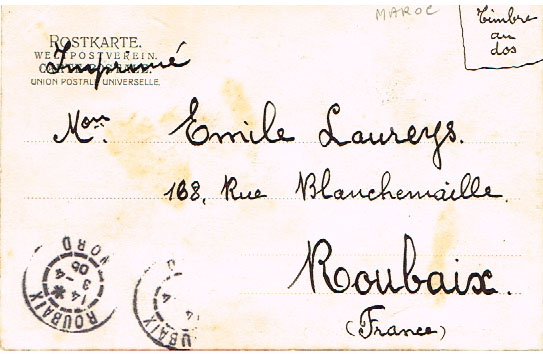 MAROC
Timbre
au
dos
POSTKARTE.
WELTPOSTVEREIN.
CARTE POSTALE.
UNION POSTALE UNIVERSELLE.
Imprimé
Mon. Emile Laureys.
168, Rue Blanchemaille.
Roubaix.
(France)
ROUBAIX
14
3-4
05
NORD